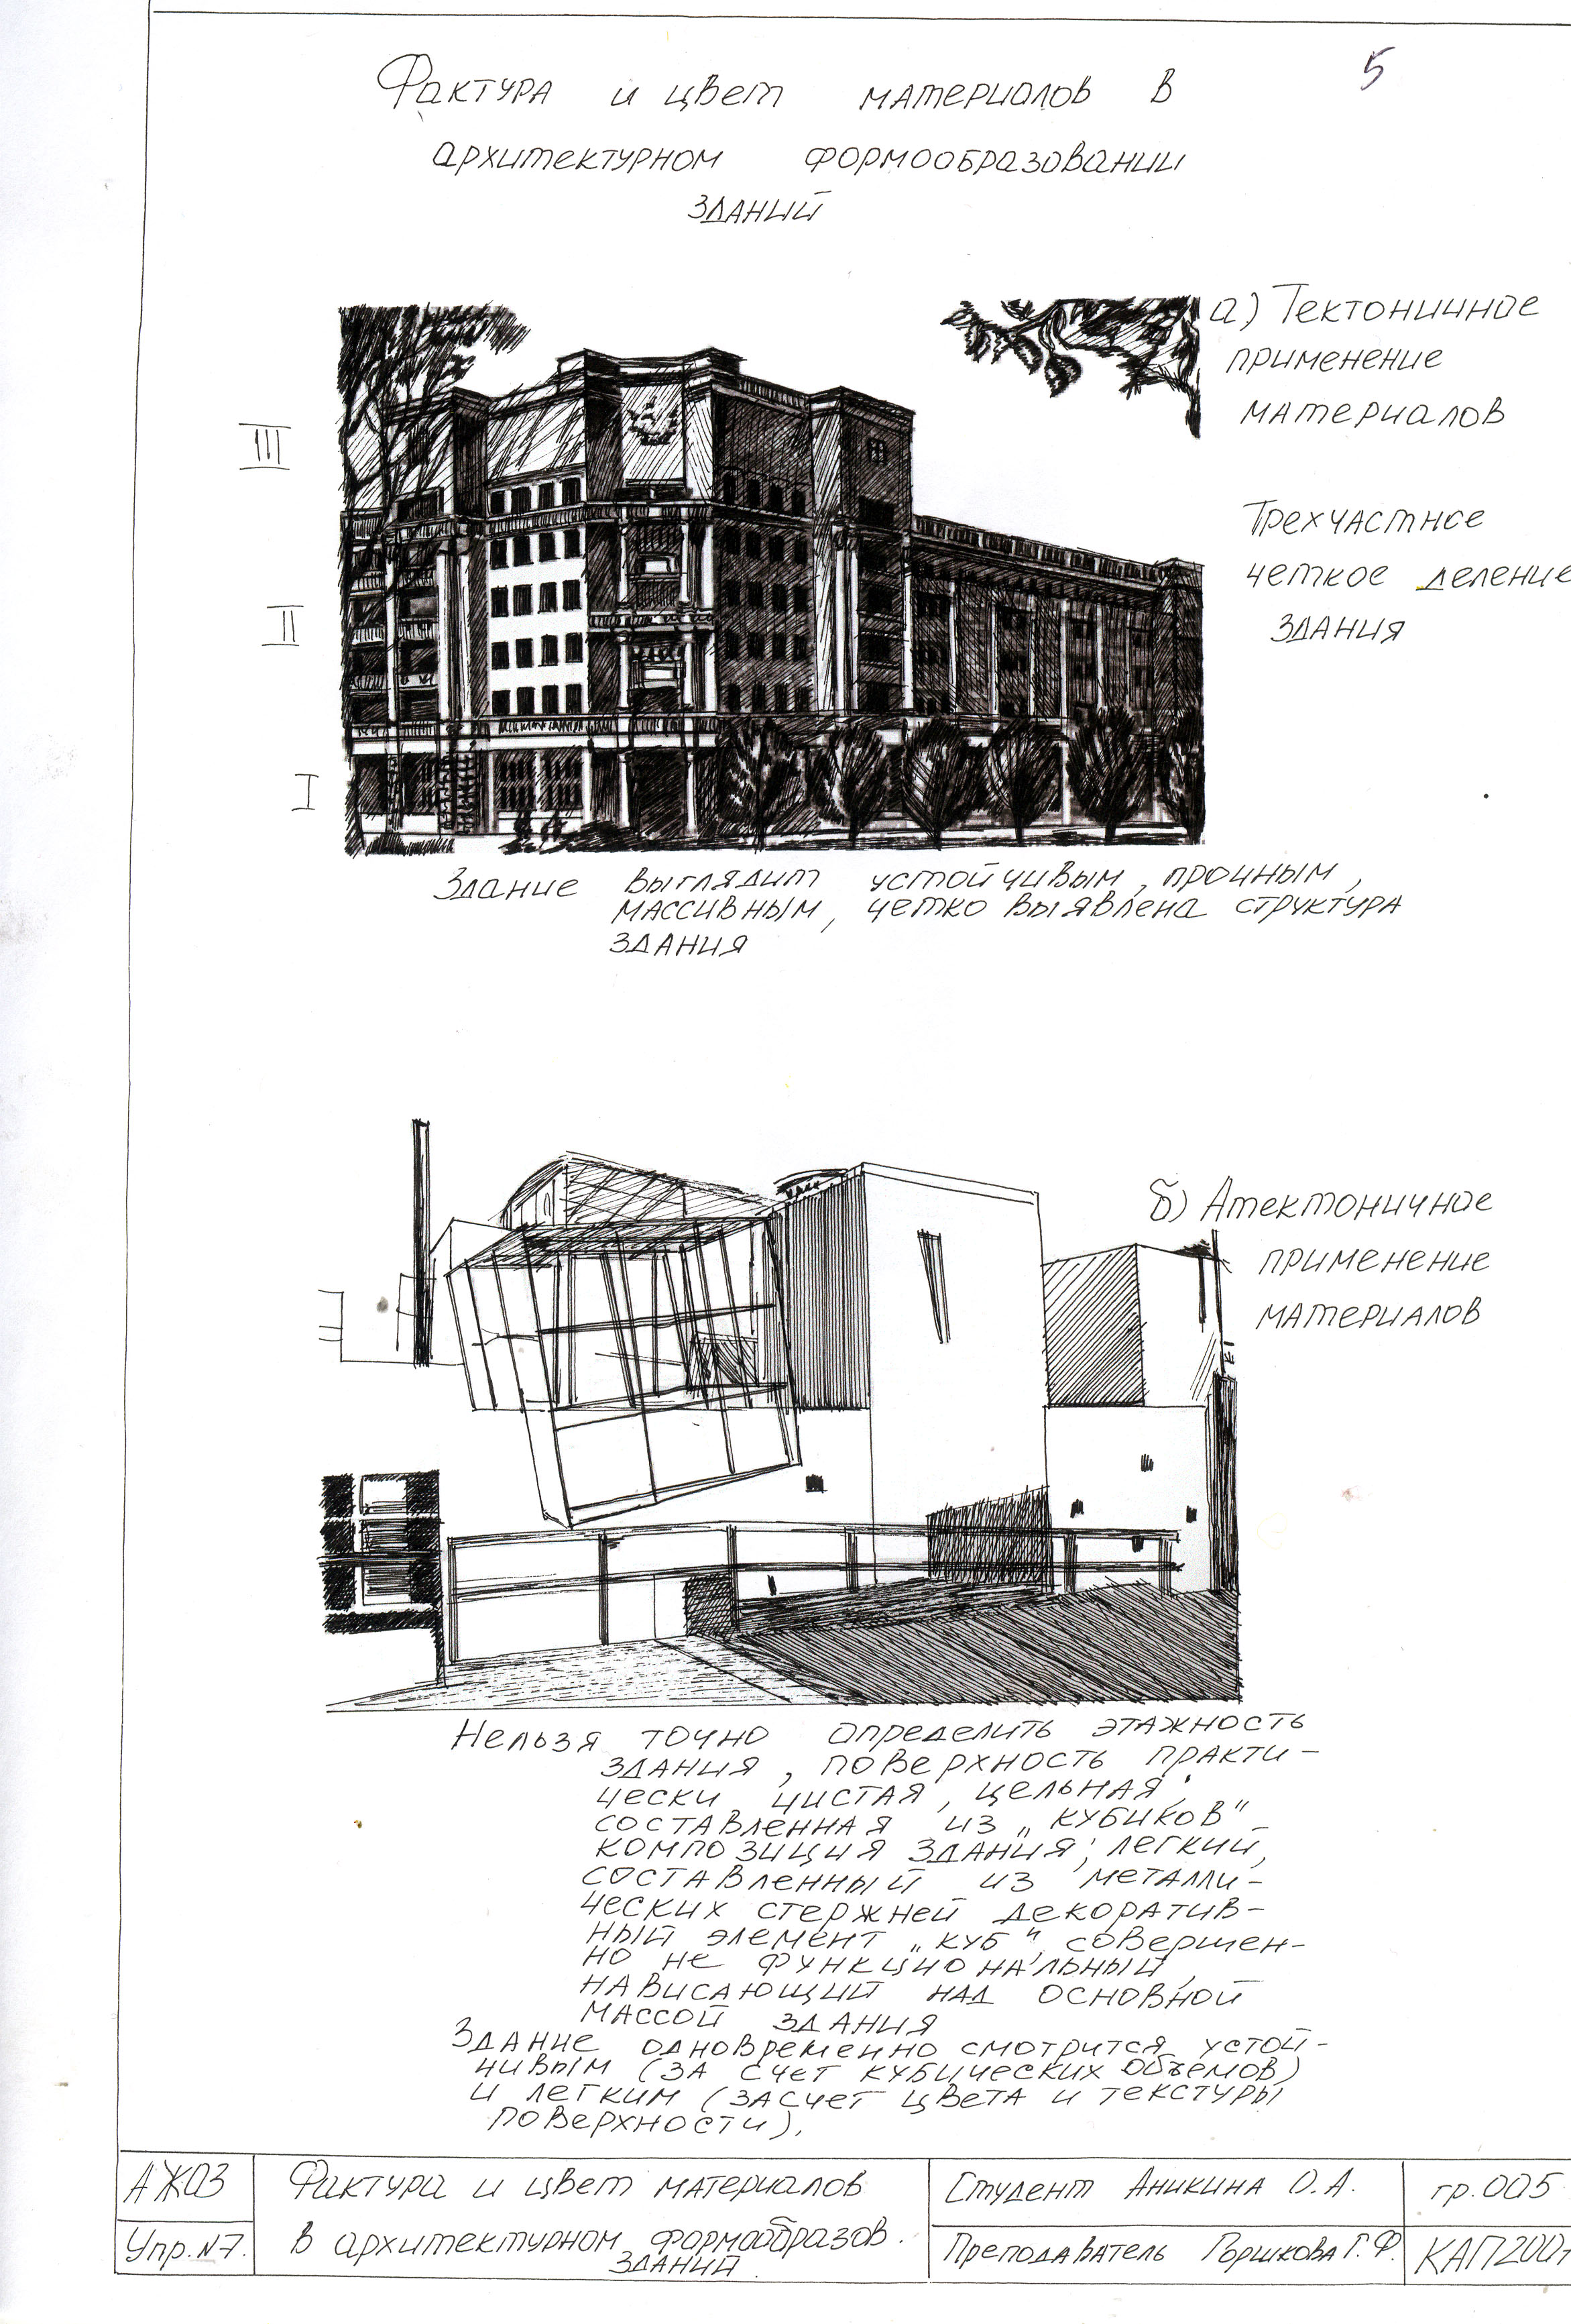 Фактура и цвет материалов в
5
архитектурном формообразовании
зданий
а) Тектоничное
применение
материалов
III
Трехчастное
четкое деление
здания
II
I
Здание выглядит устойчивым, прочным,
массивным, четко выявлена структура
здания
б) Атектоничное
применение
материалов
Нельзя точно определить этажность
здания, поверхность практи-
чески чистая, цельная;
составленная из „кубиков"
композиция здания; легкий,
составленный из металли-
ческих стержней декоратив-
ный элемент „куб", совершен-
но не функциональный,
нависающий над основной
массой здания
Здание одновременно смотрится устой-
чивым (за счет кубических объемов)
и легким (засчет цвета и текстуры
поверхности).
АЖОЗ
Фактура и цвет материалов
Студент Аникина О.А.
гр.005
Упр.N7.
в архитектурном формообразов.
зданий
Преподаватель Горшкова Г.Ф.
КАП200